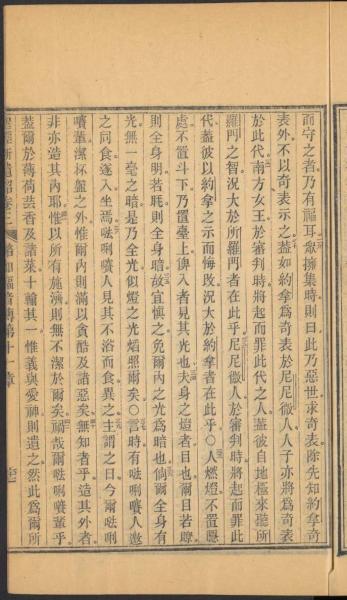 而守之者乃有福耳衆擁集時則曰此乃惡世求奇表除先知約拿奇
表外不以奇表示之蓋如約拿爲奇表於尼尼微人人子亦將爲奇表
於此代南方女王於審判時將起而罪此代之人蓋彼自地極來聽所
羅門之智況大於所羅門者在此乎尼尼微人於審判時將起而罪此
代蓋彼以約拿之示而悔改況大於約拿者在此乎〇人燃燈不置隱
處不置斗下乃置臺上俾入者見其光也夫身之燈者目也爾目若瞭
則全身明若眊則全身暗故宜慎之免爾內之光爲暗也倘爾全身有
光無一毫之暗是乃全光似燈之光焰照爾矣〇言時有㕸唎㘔人邀
之同食遂入坐焉㕸唎㘔人見其不浴而食異之主謂之曰今爾㕸唎
㘔輩潔杯盤之外惟爾內則滿以貪酷及諸惡矣無知者乎造其外者
非亦造其內耶惟以所有施濟則無不潔於爾矣禍哉爾㕸唎㘔輩乎
蓋爾於薄荷芸香及諸菜十輸其一惟義與愛神則遺之然此爲爾所
路加福音傳第十一章